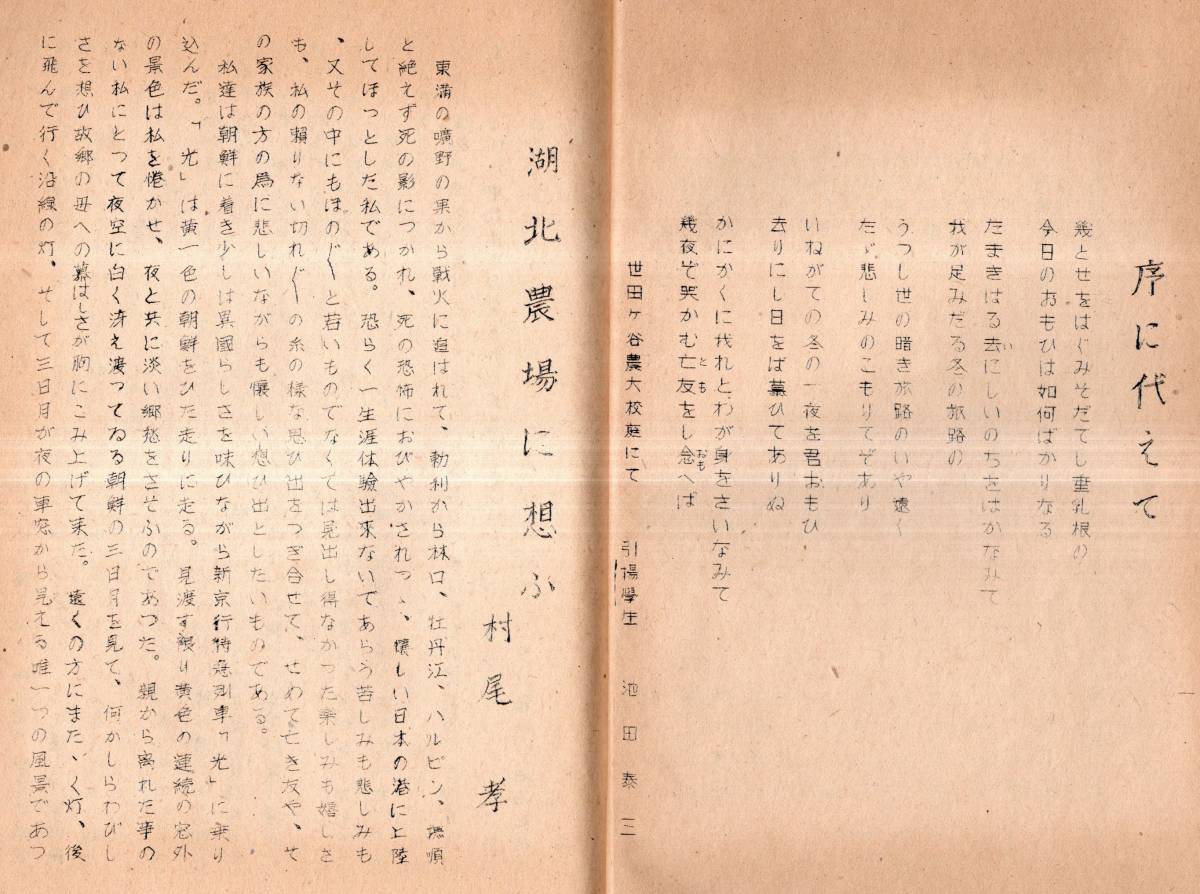 序に代えて
幾とせをはぐみそだてし垂乳根の
今日のおもひは如何ばかりなる
たまきはる去にしいのちをはかなみて
我が足みだる冬の旅路の
うつし世の暗き旅路のいや遠く
たゞ悲しみのこもりてぞあり
いねがての冬の一夜を君おもひ
去りにし日をば慕ひてありぬ
かにかくに我れとわが身をさいなみて
幾夜ぞ哭かむ亡友をし念へば
世田ヶ谷農大校庭にて
引揚學生 池田泰三
湖北農場に想ふ
村尾孝
東満の曠野の果から戦火に追はれて、勃利から林口、牡丹江、ハルピン、撫順
と絶えず死の影につかれ、死の恐怖におびやかされつゝ、懐しい日本の港に上陸
してほっとした私である。恐らく一生涯体驗出來ないであらう苦しみも悲しみも
、又その中にもほのぐ〱と若いものでなくては見出し得なかった楽しみも嬉しさ
も、私の頼りない切れぐ〱の糸の様な思ひ出をつぎ合せて、せめて亡き友や、そ
の家族の方の為に悲しいながらも懐しい想ひ出としたいものである。
私達は朝鮮に着き少しは異國らしさを味ひながら新京行特急列車「光」に乗り
込んだ。「光」は黄一色の朝鮮をひた走りに走る。見渡す限り黄色の連続の窓外
の景色は私を倦かせ、夜と共に淡い郷愁をさそふのであつた。親から离れた事の
ない私にとつて夜空に白く冴え渡つてゐる朝鮮の三日月を見て、何かしらわびし
さを想ひ故郷の母への慕はしさが胸にこみ上げて来た。遠くの方にまたゝく灯、後
に飛んで行く沿線の灯、そして三日月が夜の車窓から見える唯一つの風景であつ